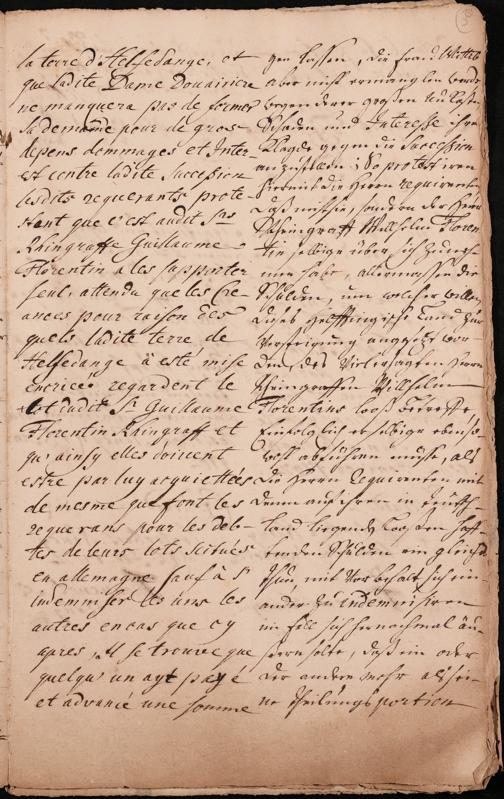 la terre d'Helfedange, et
que ladite Dame Douairiere
ne manquera pas de former
sa demande pour de gros
depens dommages et Inter-
est contre ladite Succession
lesdits requerants prote-
stant que c'est audit Sr.
Rhingraffe Guillaume
Florentin a les supporter
seul, attendu que les Cre-
ances pour raison des
quels ladite terre de
Helfedange à esté mise
encriée regardent le
lot dudit Sr. Guillaume
Florentin Rhingraff et
qu'ainsy elles doivent
estre par luy acquiettées
de mesme que font les
requerans pour les deb-
tes de leurs lots scitués
en allemagne sauf à s'
indemniser les uns les
autres en cas que cy
apres, il se trouve que
quelqu'un ayt payé
et advancé une somme
gen lassen, die frau Wittib
aber nicht ermanglen werde
wegen derer grossen Unkosten
Schaden und Interesse ihre
Klagde gegen die Succession
anzustellen; So protestiren
hiermit die Herren requirenten,
daß nicht sie, sondern der Herr
Rheingraff Wilhelm Floren
tin selbige über sich zu neh-
men habe, allermassen die
Schulden, um welcher willen
dieses Helffingische Land zur
Versteigung angesetzt wor-
den, des Herren
Rheingraffen Wilhelm
Florentins Looß Betreffe,
Einfolglich er selbige ebenso-
wohl abführen müsse, als
die Herren Requirenten mit
denen anderen in Teutsch-
land liegenden Loosen haff-
tenden Schulden ein gleiches
thun, mit Vorbehalt sich ein-
ander zu indemnisiren
im fall sich hernochmal äu-
sseren solte, daß ein oder
der andere mehr als sei-
ne theilungs portion